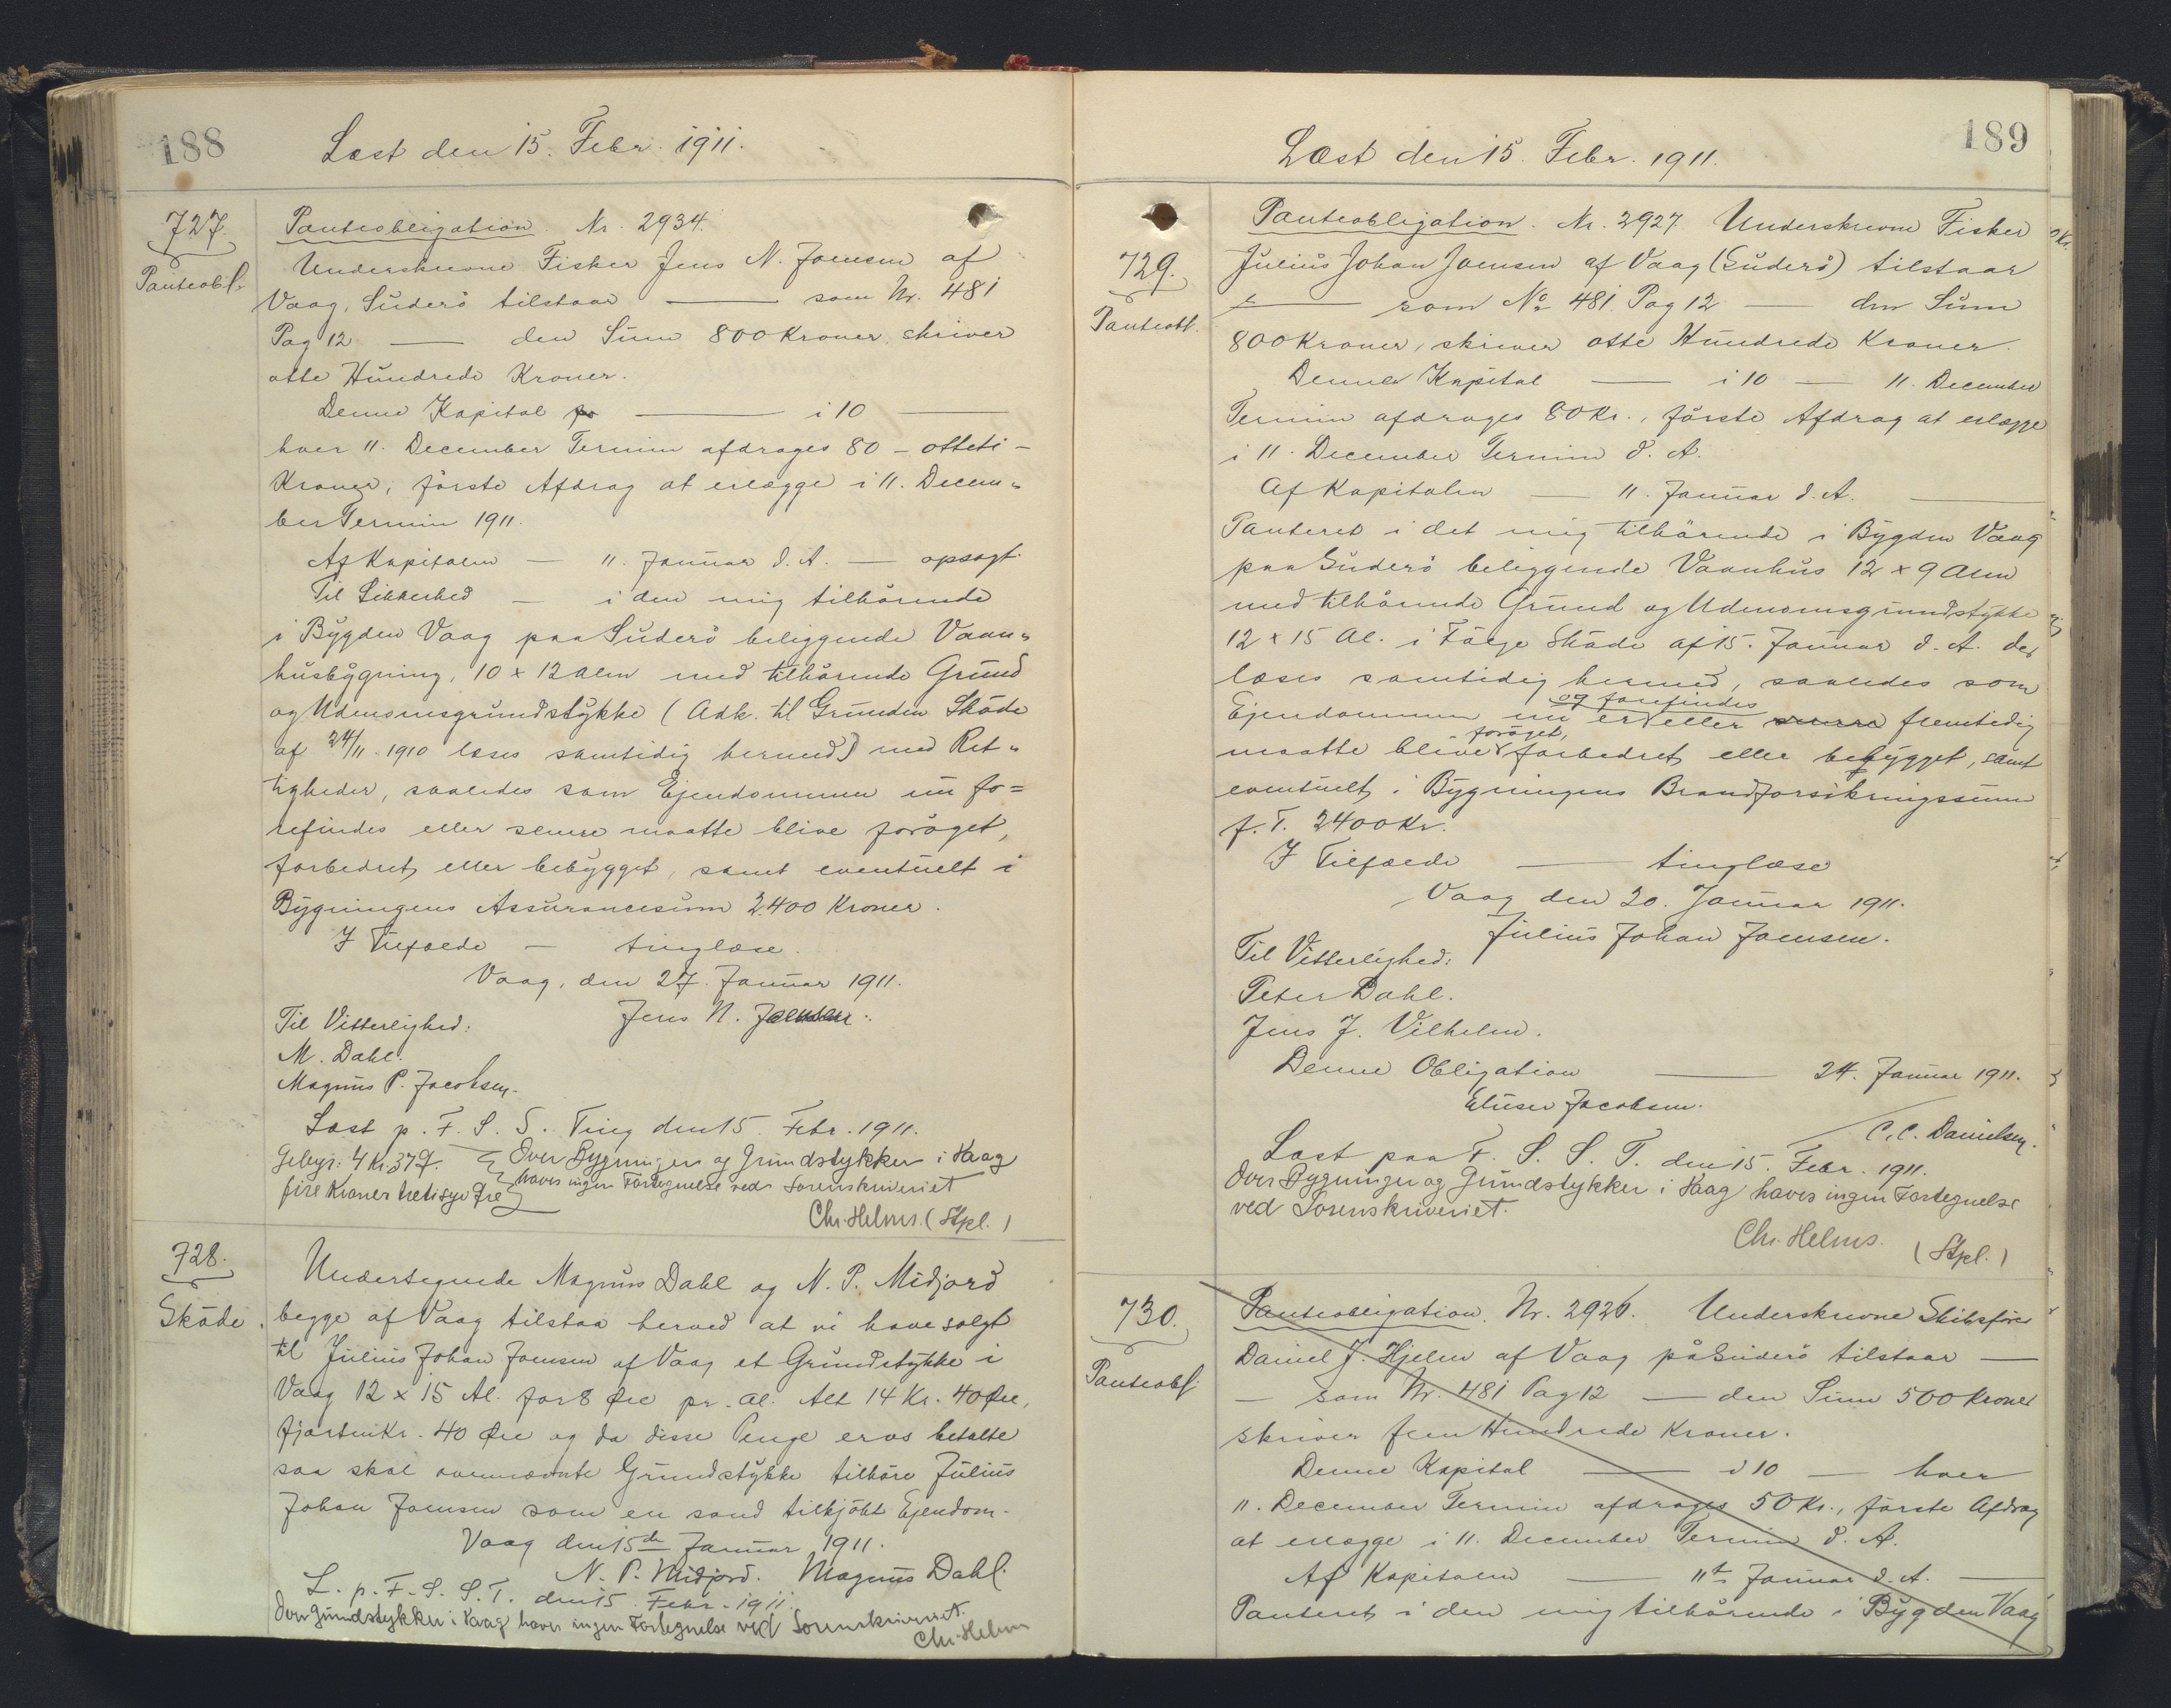 188
Læst den 15. Febr. 1911.
727.
Panteobl.
Panteobligation Nr. 2934.
Underskrevne Fisker Jens N. Joensen af
Vaag, Suderö tilstaar — som Nr. 481
Pag 12 — den Sum 800 Kroner, skriver
otte Hundrede Kroner.
Denne Kapital — i 10 —
hver 11. December Termin afdrages 80 - otteti -
Kroner, förste Afdrag at erlægge i 11. Decem-
ber Termin 1911.
Af Kapitalen — 11. Januar d. A. — opsagt.
Til Sikkerhed — i den mig tilhörende
i Bygden Vaag paa Suderö beliggende Vaan-
husbygning, 10 x 12 Alen med tilhörende Grund
og Udenomsgrundstykke (Adk. til Grunden Sköde
af 24/11 1910 læses samtidig hermed) med Ret-
tigheder, saaledes som Ejendommen nu fo=
refindes eller senere maatte blive foröget,
forbedret, eller bebygget, samt eventuelt i
Bygningens Assurancesum 2400 Kroner.
I Tilfælde — tinglæse.
Vaag, den 27. Januar 1911.
Til Vitterlighed: Jens N. Joensen.
M. Dahl.
Magnus P. Jacobsen.
Læst p. F. S. S. Ting den 15. Febr. 1911.
Gebyr: 4 Kr. 37 Ø. Over Bygninger og Grundstykker i Vaag
fire Kroner tretisyv Øre haves ingen Fortegnelse ved Sorenskriveriet
Chr. Helms. (Stpl.)
728.
Sköde.
Undertegnede Magnus Dahl og N. P. Midjord
begge af Vaag tilstaa herved at vi have solgt
til Julius Johan Joensen af Vaag et Grundstykke i
Vaag 12 x 15 Al. for 8 Øre pr. Al. Alt 14 Kr. 40 Øre,
fjorten Kr. 40 Øre og da disse Penge er os betalte
saa skal ovennævnte Grundstykke tilhöre Julius
Johan Joensen som en sand tilkjöbt Ejendom.
Vaag den 15de Januar 1911.
N. P. Midjord. Magnus Dahl.
L. p. F. S. S. T. den 15. Febr. 1911.
Over Grundstykker i Vaag haves ingen Fortegnelse ved Sorenskriveriet.
Chr. Helms
189
Læst den 15. Febr. 1911.
729.
Panteobl.
Panteobligation. Nr. 2927. Underskrevne Fisker
Julius Johan Joensen af Vaag (Suderö) tilstaar
— som No 481. Pag 12 — den Sum
800 Kroner, skriver otte Hundrede Kroner.
Denne Kapital — i 10 — 11. December
Termin afdrages 80 Kr., förste Afdrag at erlægge
i 11. December Termin d. A.
Af Kapitalen — 11. Januar d. A. —
Panteret i det mig tilhörende i Bygden Vaag
paa Suderö beliggende Vaanhus 12 x 9 Alen
med tilhörende Grund og Udenomsgrundstykke
12 x 15 Al. i Fölge Sköde af 15. Januar d. A. der
læses samtidig hermed, saaledes som
og forefindes
Ejendommen nu er eller senere fremtidig
foröget,
maatte blive forbedret, eller bebygget, samt
eventuelt i Bygningens Brandforsikringssum
f. T. 2400 Kr.
I Tilfælde — tinglæse
Vaag den 20. Januar 1911.
Julius Johan Joensen.
Til Vitterlighed:
Peter Dahl.
Jens J. Vilhelm.
Denne Obligation — 24. Januar 1911.
Eliuser Jacobsen.
C. C. Danielsen.
Læst paa F. S. S. T. den 15. Febr. 1911.
Over Bygninger og Grundstykker i Vaag haves ingen Fortegnelse
ved Sorenskriveriet.
Chr. Helms. (Stpl.)
730.
Panteobl
Panteobligation. Nr. 2926. Underskrevne Skibsförer
Daniel J. Hjelm af Vaag på Suderö tilstaar —
— som Nr. 481 Pag 12 — den Sum 500 Kroner
skriver fem Hundrede Kroner.
Denne Kapital — i 10 — hver
11. December Termin afdrages 50 Kr., förste Afdrag
at erlægge i 11. December Termin d. A.
Af Kapitalen — 11te Januar d. A. —
Panteret i den mig tilhörende i Bygden Vaag